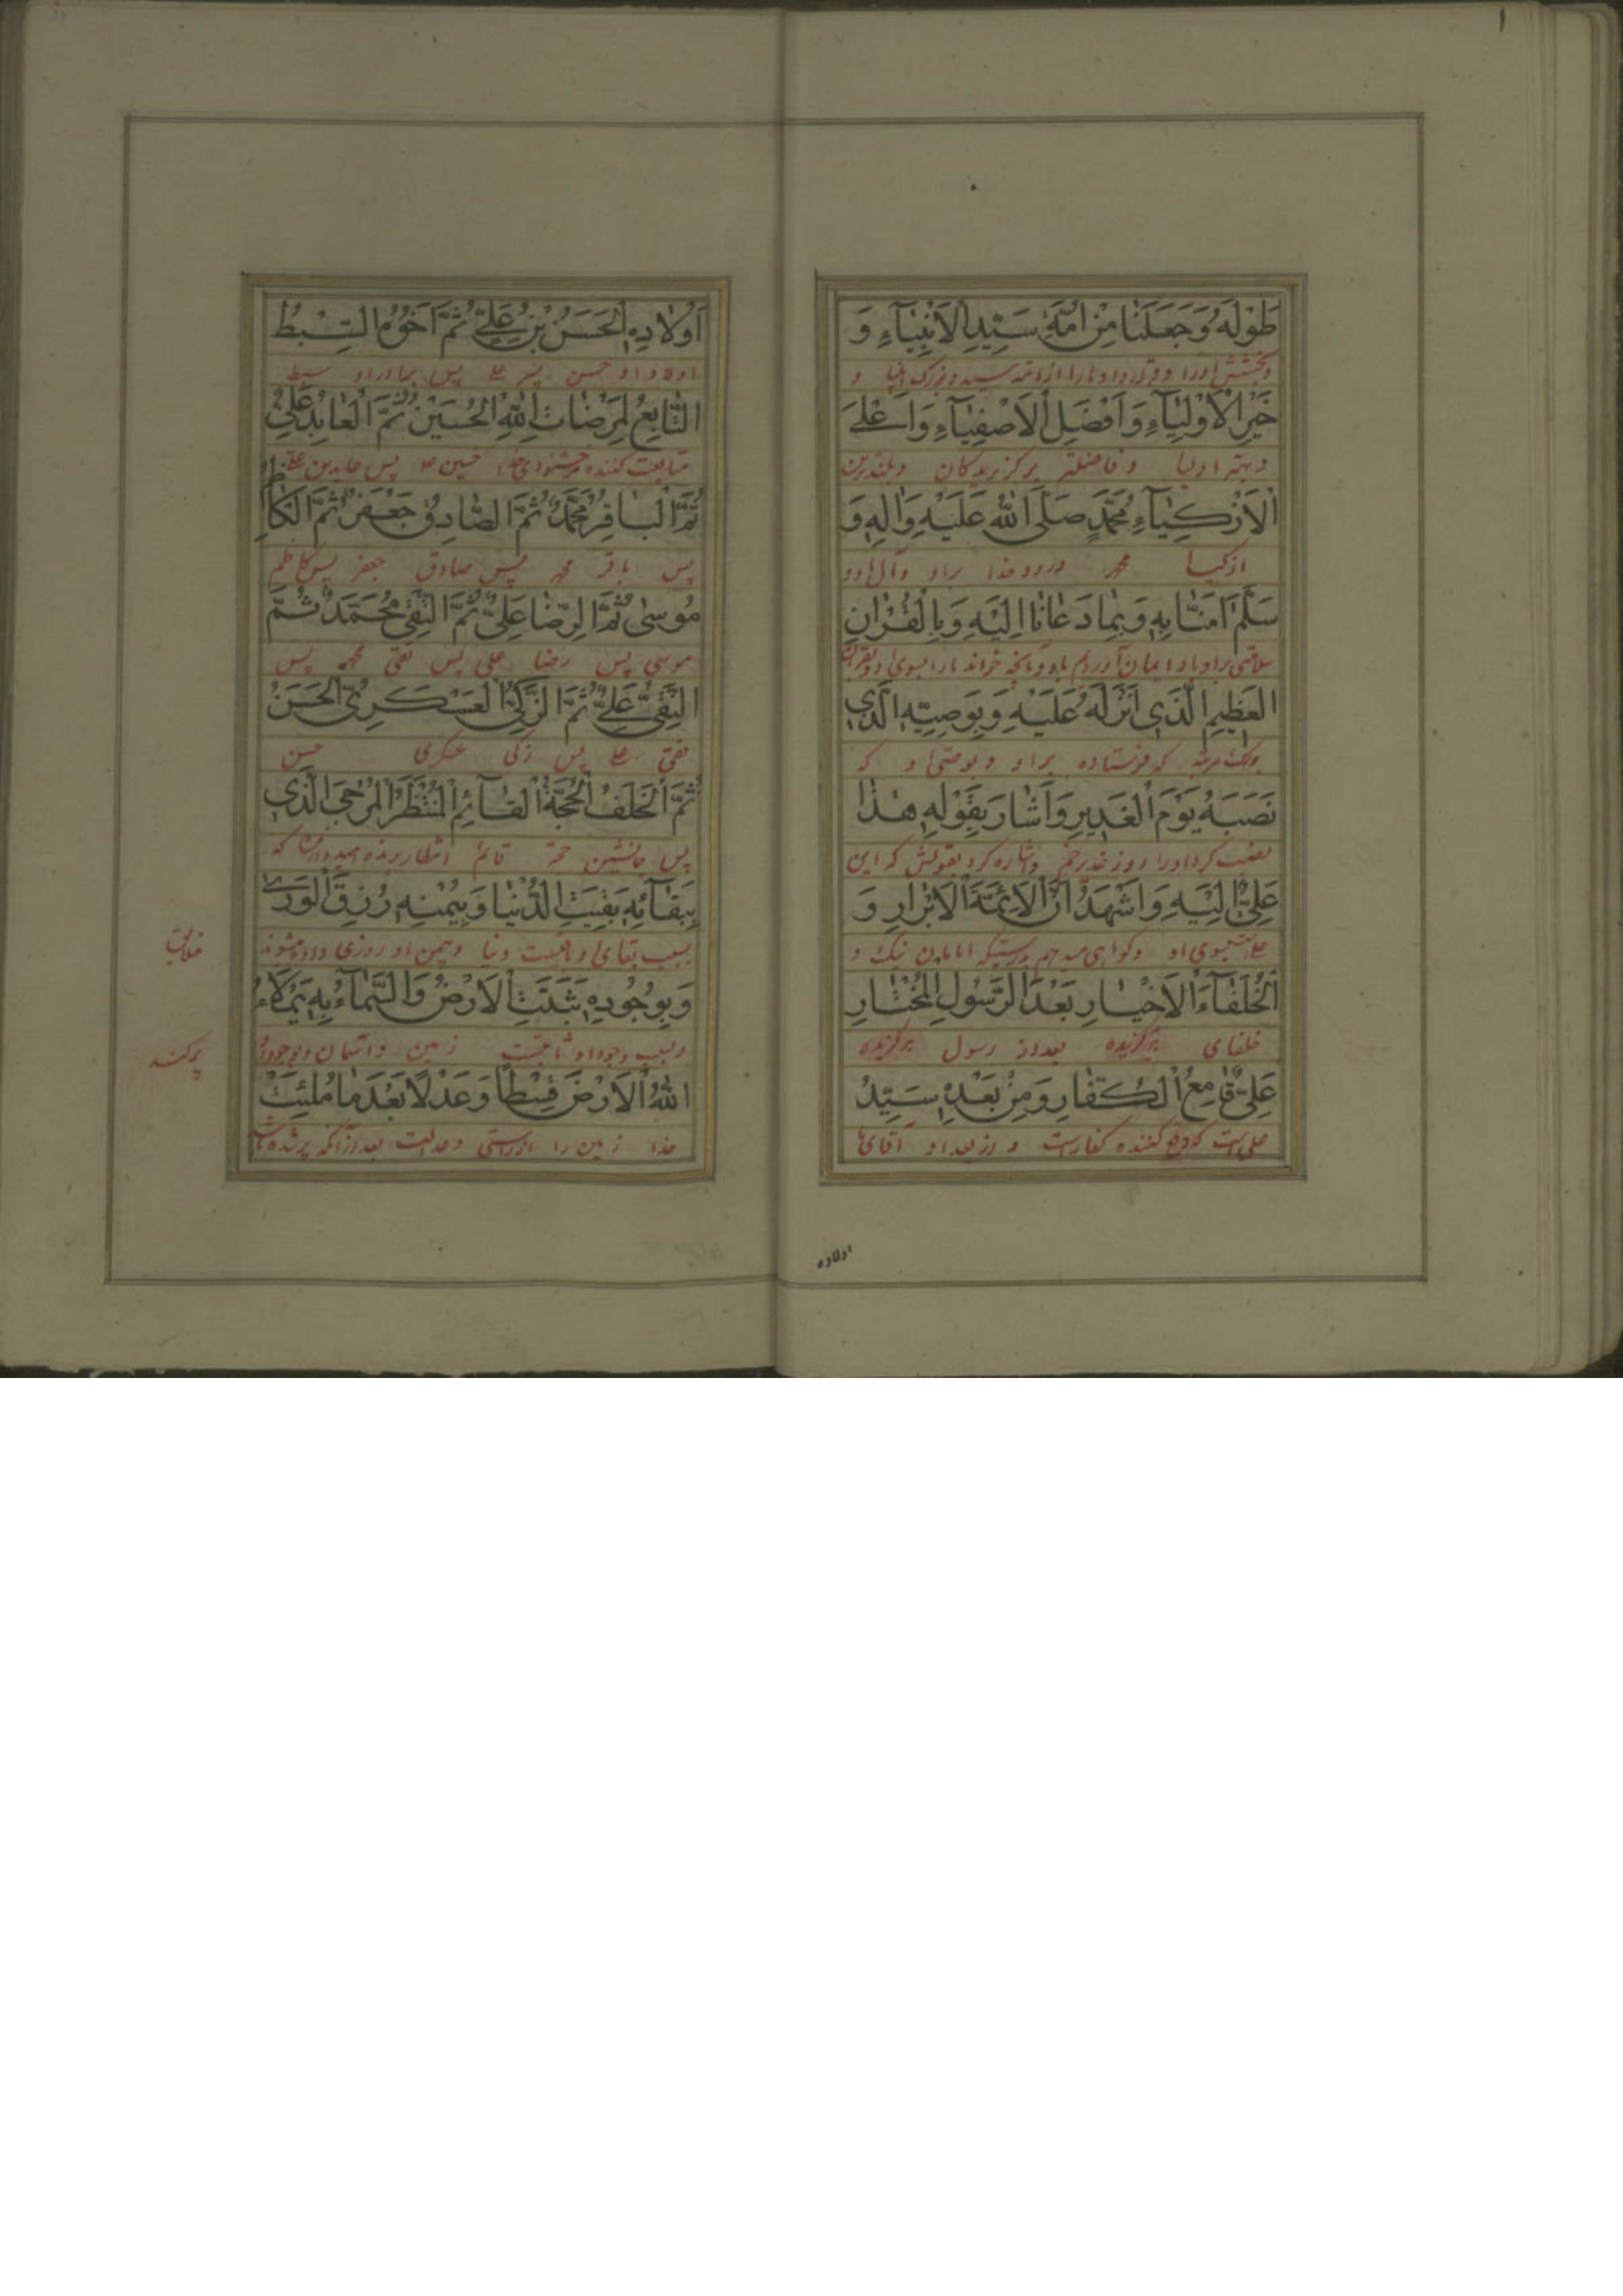 طَوْلَهُ وَجَعَلَنَا مِنْ اُمَّةِ سَيِّدِ الْاَنْبِيَآءِ وَ
و
خَيْرِ الْاَوْلِيَآءِ وَاَفْضَلِ الْاَصْفِيَآءِ وَاَعْلَى
و بهتر اوليا و فاضلتر برگزیدگان و بلندترین
الْاَزْكِيَآءِ مُحَمَّدٍ صَلَّى اللهُ عَلَيْهِ وَاٰلِهِ وَ
ازکیا محمد درود خدا براو وآل او و
سَلَّمَ اٰمَنَّا بِهِ وَبِمَا دَعَانَا اِلَيْهِ وَبِالْقُرْاٰنِ
الْعَظِيمِ الَّذِي اَنْزَلَهُ عَلَيْهِ وَبِوَصِيِّهِ الَّذِي
که فرستاده براو و بوصی او که
نَصَبَهُ يَوْمَ الْغَدِيرِ وَاَشَارَ بِقَوْلِهِ هٰذَا
نصب کرد اورا روز غدیر خم و اشاره کرد بقولش که این
عَلِيٌّ اِلَيْهِ وَاَشْهَدُ اَنَّ الْاَئِمَّةَ الْاَبْرَارِ وَ
بسوی او و گواهی میدهم بدرستیکه امامان نیک و
الْخُلَفَآءَ الْاَخْيَارِ بَعْدَ الرَّسُولِ الْمُخْتَارِ
خلفای برگزیده بعداز رسول برگزیده
عَلِيٌّ قَامِعُ الْكُفَّارِ وَمِنْ بَعْدِهِ سَيِّدُ
علی است که دفع کننده کفارست و از بعد او آقای
اولاده
اَوْلَادِهِ الْحَسَنُ بْنُ عَلِيٍّ ثُمَّ اَخُوهُ السِّبْطُ
اولاد او حسن پسر علی پس برادر او سبط
التَّابِعُ لِمَرْضَاتِ اللهِ الْحُسَيْنُ ثُمَّ الْعَابِدُ عَلِيٌّ
متابعت کننده خوشنودی خدا حسین پس عابدین علی
ثُمَّ الْبَاقِرُ مُحَمَّدٌ ثُمَّ الصَّادِقُ جَعْفَرٌ ثُمَّ الْكَاظِمُ
پس باقر محمد پس صادق جعفر پس کاظم
مُوسٰى ثُمَّ الرِّضَا عَلِيٌّ ثُمَّ التَّقِيُّ مُحَمَّدٌ ثُمَّ
موسی پس رضا علی پس تقی محمد پس
النَّقِيُّ عَلِيٌّ ثُمَّ الزَّكِيُّ الْعَسْكَرِيُّ الْحَسَنُ
نقی علی پس زکی عسکری حسن
ثُمَّ الْخَلَفُ الْحُجَّةُ الْقَآئِمُ الْمُنْتَظَرُ الْمُرْجَى الَّذِي
پس جانشین حجة قائم انتظار برده که
بِبَقَآئِهِ بَقِيَتِ الدُّنْيَا وَبِيُمْنِهِ رُزِقَ الْوَرٰى
بسبب بقای او باقیست دنیا و بیمن او روزی داده میشوند
خلایق
وَبِوُجُودِهِ ثَبَتَتِ الْاَرْضُ وَالسَّمَآءُ بِهِ يَمْلَاءُ
و بسبب وجود او ثابتست زمین و آسمان و بوجود او
پرکند
اللهُ الْاَرْضَ قِسْطًا وَعَدْلًا بَعْدَ مَا مُلِئَتْ
خدا زمین را از راستی و عدالت بعد ازآنکه پر شده باشد